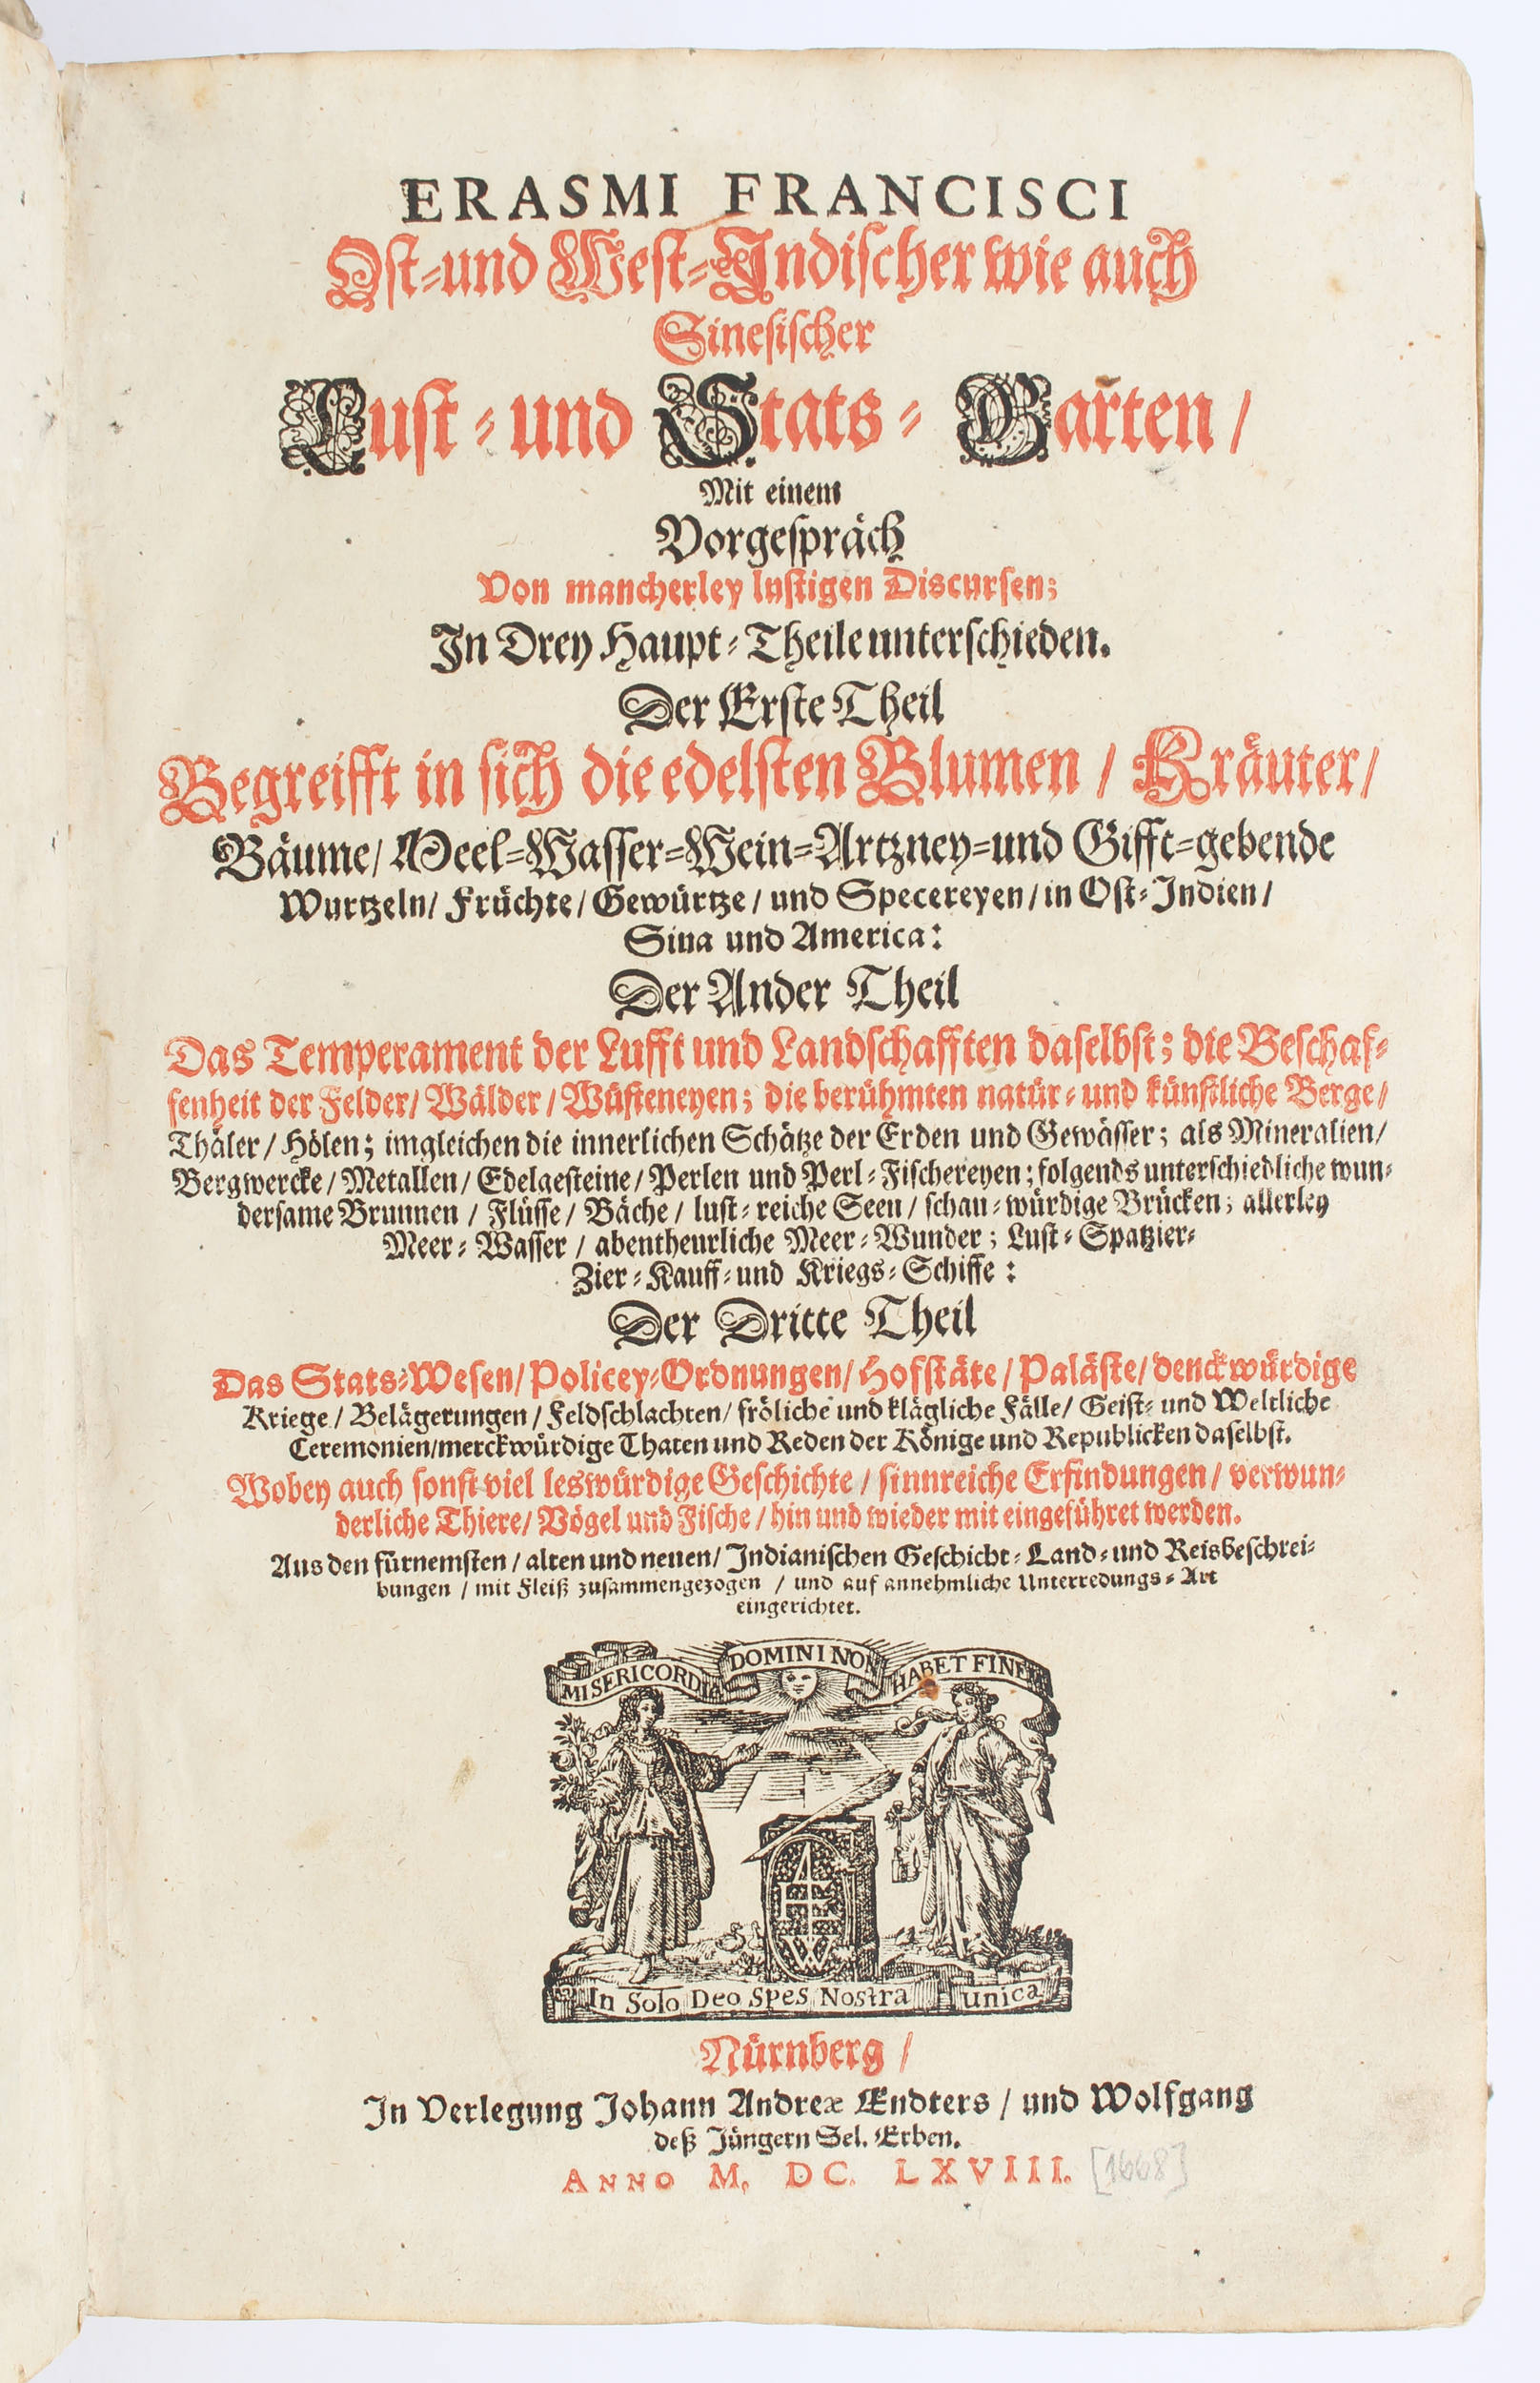 ERASMI FRANCISCI
Ost-und West-Indischer wie auch
Sinesischer
Lust-und Stats-Garten/
Mit einem
Vorgespräch
Von mancherley lustigen Discursen;
In Drey Haupt-Theile unterschieden.
Der Erste Theil
Begreifft in sich die edelsten Blumen/ Kräuter/
Bäume/ Meel-Wasser-Wein-Artzney-und Gifft-gebende
Wurtzeln/ Früchte/ Gewürtze/ und Specereyen/ in Ost-Indien/
Sina und America:
Der Ander Theil
Das Temperament der Lufft und Landschafften daselbst; die Beschaf-
fenheit der Felder/ Wälder/ Wüsteneyen; die berühmten natür-und künstliche Berge/
Thäler/ Hölen; imgleichen die innerlichen Schätze der Erden und Gewässer; als Mineralien/
Bergwercke/ Metallen/ Edelgesteine/ Perlen und Perl-Fischereyen; folgends unterschiedliche wun-
dersame Brunnen/ Flüsse/ Bäche/ lust-reiche Seen/ schau-würdige Brücken; allerley
Meer-Wasser/ abentheurliche Meer-Wunder; Lust-Spatzier-
Zier-Kauff-und Kriegs-Schiffe:
Der Dritte Theil
Das Stats-Wesen/ Policey-Ordnungen/ Hofstäte/ Paläste/ denckwürdige
Kriege/ Belägerungen/ Feldschlachten/ fröliche und klägliche Fälle/ Geist-und Weltliche
Ceremonien/ merckwürdige Thaten und Reden der Könige und Republicken daselbst.
Wobey auch sonst viel leswürdige Geschichte/ sinnreiche Erfindungen/ verwun-
derliche Thiere/ Vögel und Fische/ hin und wieder mit eingeführet werden.
Aus den fürnemsten/ alten und neuen/ Indianischen Geschicht-Land-und Reisbeschrei-
bungen/ mit Fleiß zusammengezogen/ und auf annehmliche Unterredungs-Art
eingerichtet.
MISERICORDIA DOMINI NON HABET FINEM
In Solo Deo Spes Nostra unica
Nürnberg/
In Verlegung Johann Andreæ Endters/ und Wolfgang
deß Jüngern Sel. Erben.
ANNO M. DC. LXVIII. [1668]